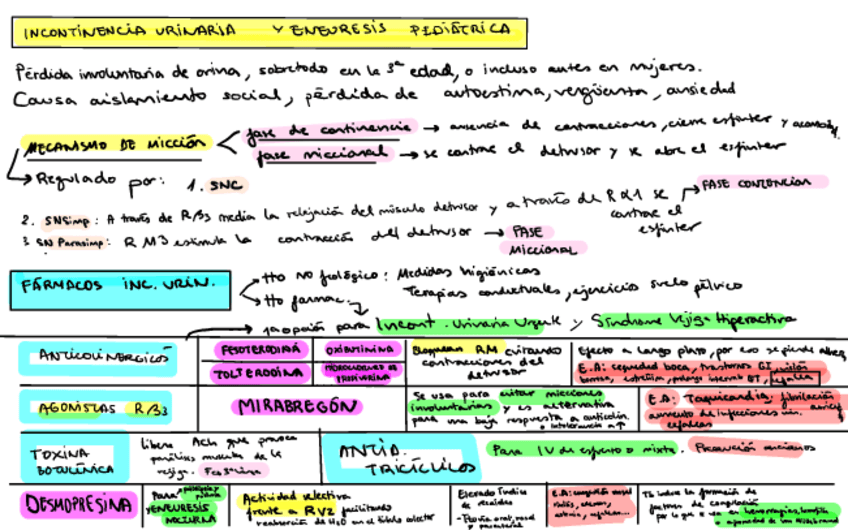 INCONTINENCIA URINARIA Y ENEURESIS PEDIÁTRICA
Pérdida involuntaria de orina, sobretodo en la 3ª edad, o incluso antes en mujeres.
Causa aislamiento social, pérdida de autoestima, vergüenza, ansiedad
MECANISMO DE MICCIÓN
fase de continencia → ausencia de contracciones, cierre esfínter y
fase miccional → se contrae el detrusor y se abre el esfínter
→ Regulado por: 1. SNC
2. SNSimp: A través de Rβ3 media la relajación del músculo detrusor y a través de Rα1 se contrae el esfínter → FASE CONTENCIÓN
3. SN Parasimp: R M3 estimula la contracción del detrusor → FASE MICCIONAL
FÁRMACOS INC. URIN.
→ tto no fcológico: Medidas higiénicas
Terapias conductuales, ejercicios suelo pélvico
→ tto farmac.
→ 1ª opción para Incont. Urinaria Urgente y Síndrome Vejiga Hiperactiva
ANTICOLINERGICOS
FESOTERODINA
OXIBUTININA
TOLTERODINA
Bloquean RM evitando contracciones del detrusor
Efecto a largo plazo, por eso se pierde
E.A: sequedad boca, trastornos GI, visión borrosa, estreñim, prolonga intervalo QT, cefalea
AGONISTAS Rβ3
MIRABREGÓN
Se usa para evitar micciones involuntarias y es alternativa para una baja respuesta a anticolin. o intolerancia a ↑
E.A: Taquicardia, fibrilación
aumento de infecciones urin.
cefaleas
TOXINA BOTULÍNICA
libera Ach que provoca
parálisis muscular de la
vejiga.
ANTID. TRICÍCLICOS
Para IV de esfuerzo o mixta. Precaución ancianos
DESMOPRESINA
Para
y ENEURESIS NOCTURNA
Actividad selectiva
frente a RV2 facilitando
reabsorción de H2O en el túbulo colector
Elevado Índice
de recaídas
E.A: congestión nasal
Tb induce la formación de
factores de coagulación
por lo que se usa en hemorragias,